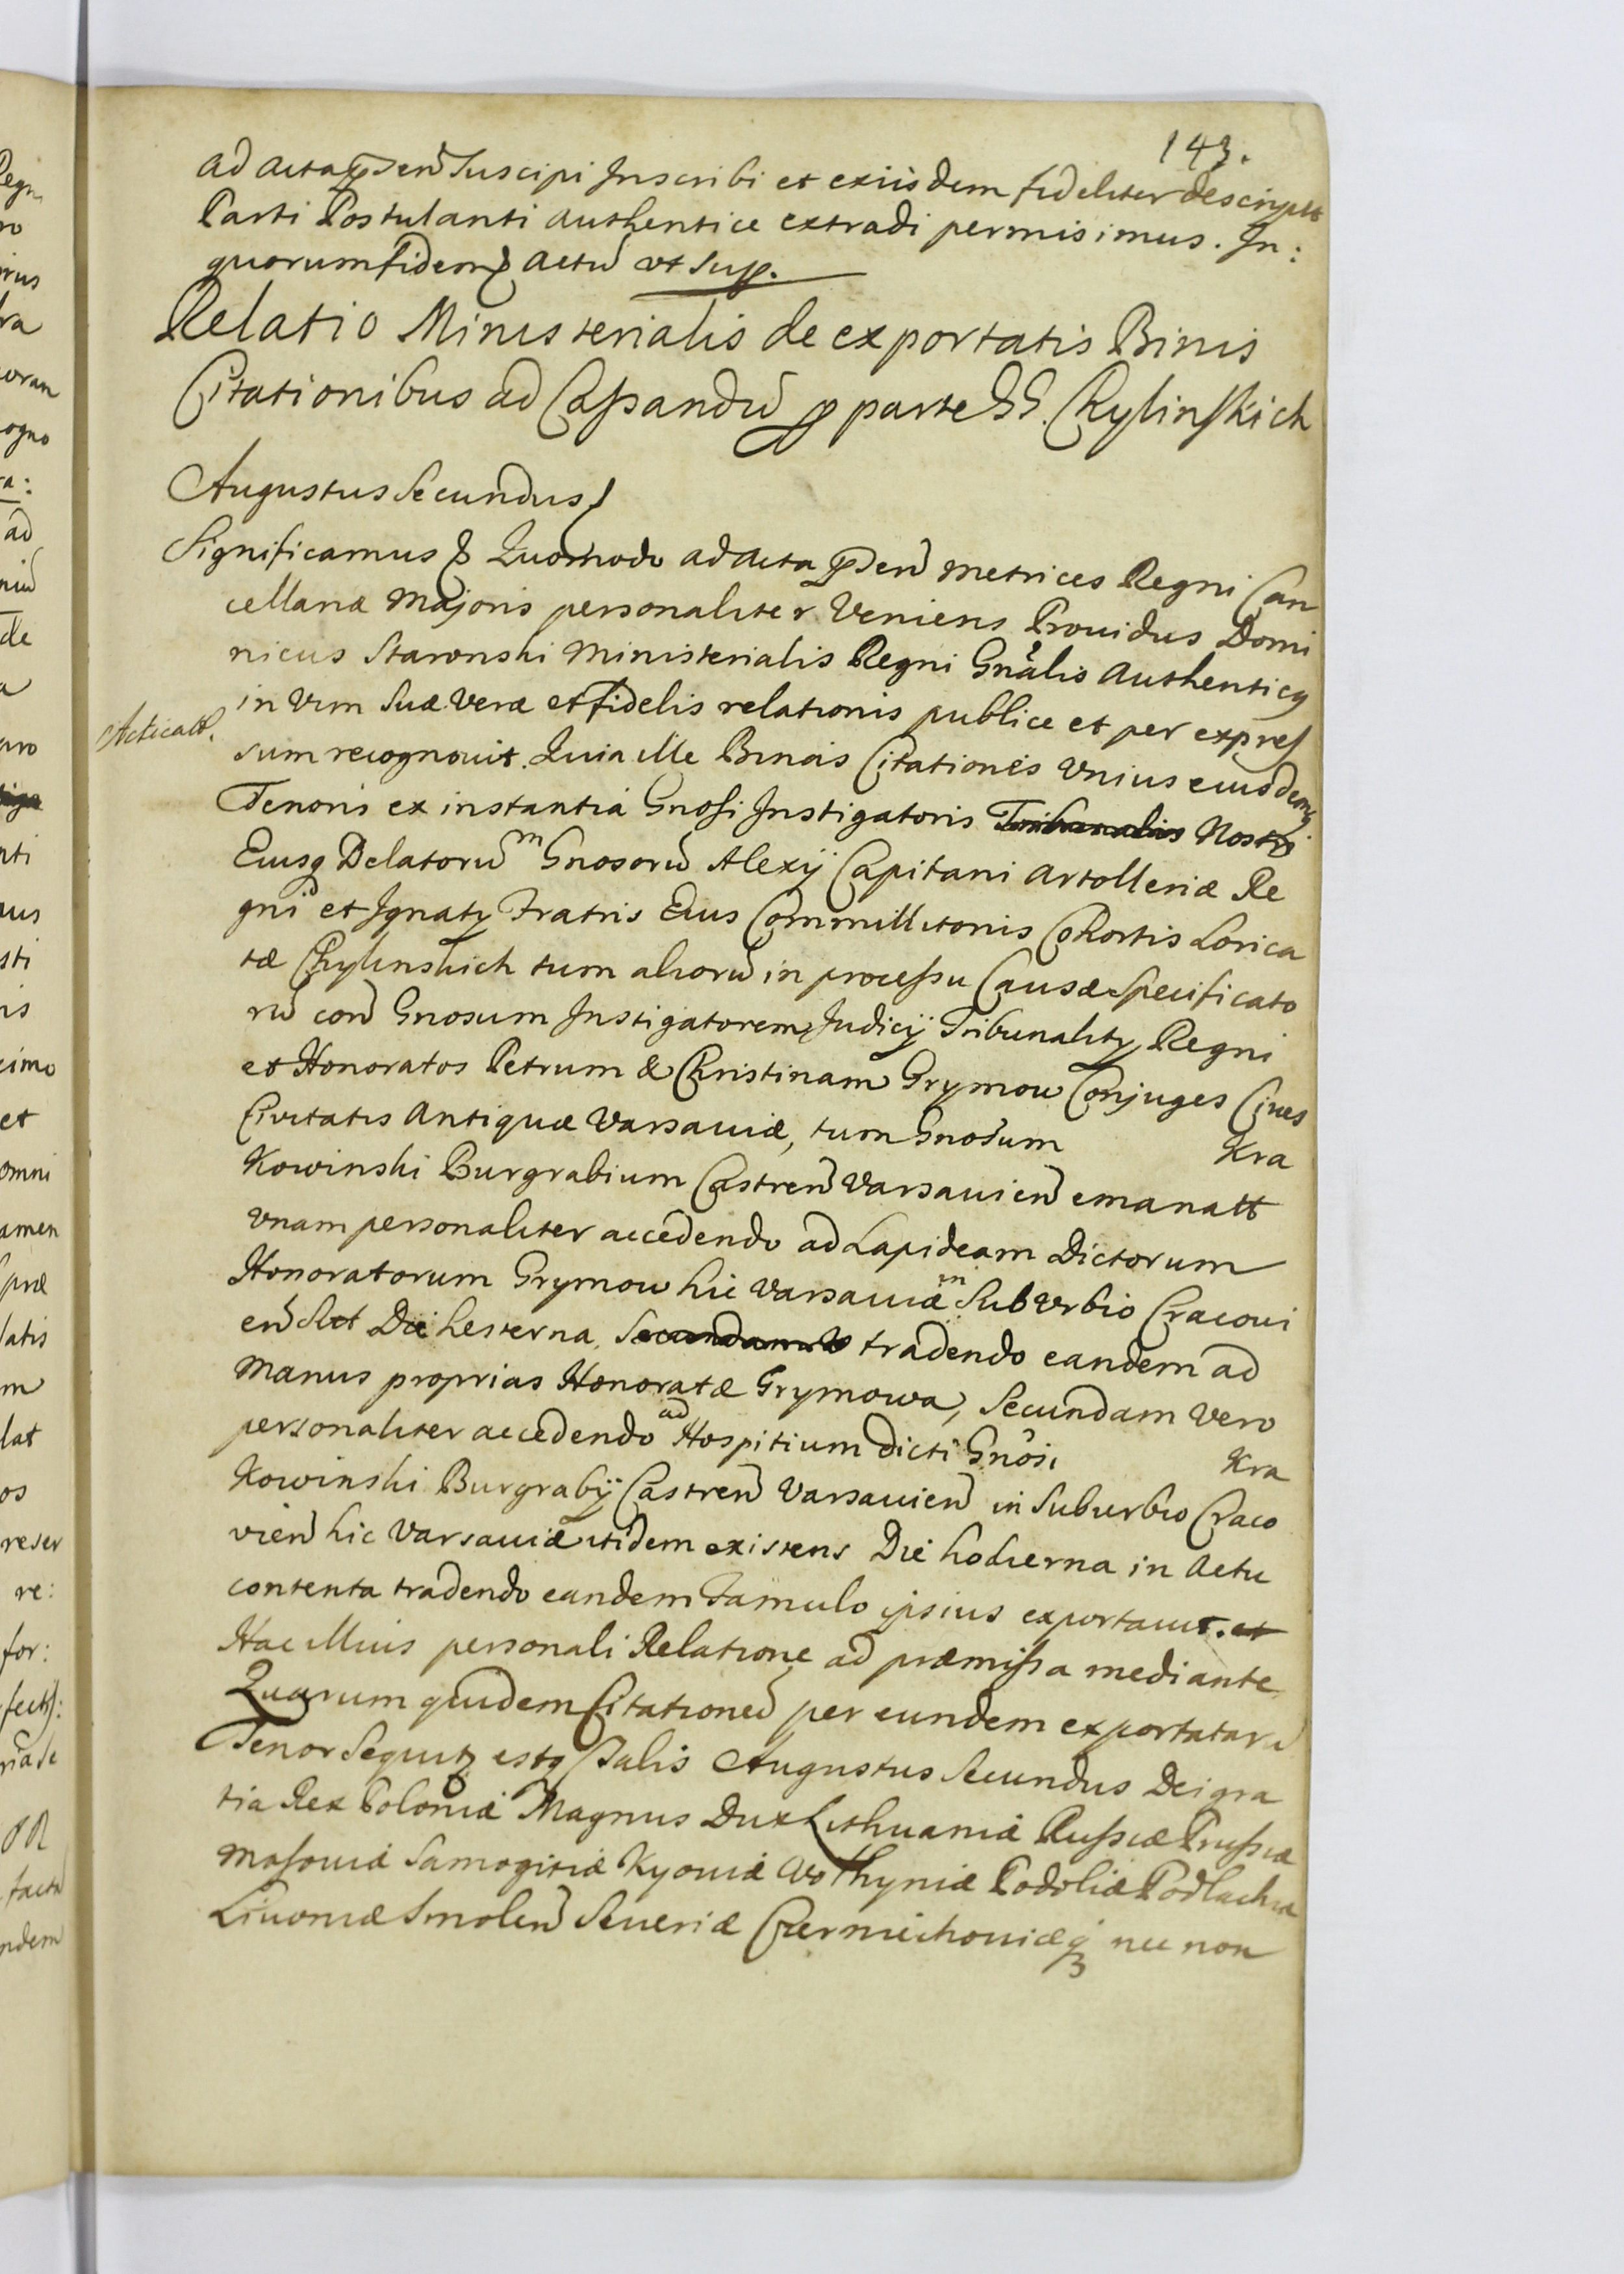 143.
ad acta pnden Suscipi Inscribi et exiisdem fideliter descriptt
Parti Postulanti authentice extradi permisimus. In:
quorum fidem & Actū vt sup.
Relatio Ministerialis de exportatis Binis
Citationibus ad Caßandū p parte GG. Chylinskich
Augustus Secundus &
Significamus & Quomodo ad acta pnden Metrices Regni Can
cellariæ Majoris personaliter Veniens Prouidus Domi
nicus Staronski Ministerialis Regni Gnâlis Authenticq
in vim Suæ Veræ et fidelis relationis publice et per expres
Acticatt.
sum recognouit. Quia ille Binas Citationes Vnius eiusdemq
Tenoris ex instantia Gnosi Instigatoris Tribunalis Nostri
Eiusq Delatorū m Gnosorū Alexÿ Capitani Artolleriæ Re
gni et Ignaty Fratris Eius Commilitonis Cohortis Lorica
tæ Chylinskich tum aliorū in proceßu Causæ Specificato
rū con Gnosum Instigatorem Judicÿ Tribunality Regni
et Honoratos Petrum & Christinam Grymow Conjuges Ciues
Ciuitatis Antiquæ Varsauiæ, tum Gnosum Kra
Kowinski Burgrabium Castren Varsauien emanatt
vnam personaliter accedendo ad Lapideam Dictorum
Honoratorum Grymow hic Varsauiæ in SubVrbio Cracoui
en Sitt Die hesterna, Secundam V tradendo eandem ad
Manus proprias Honoratæ Grymowa, Secundam Vero
personaliter accedendo ad Hospitium dicti Gnôsi Kra
Kowinski Burgrabÿ Castren Varsauien in Suburbio Craco
vien hic Varsauiæ itidem existens Die hodierna in Actu
contenta tradendo eandem Famulo ipsius exportauit. et
Hac illius personali Relatione ad præmißa mediante
Quarum quidem Citationū per eundem exportatarū
Tenor Sequitz estq Talis Augustus Secundus Dei gra
tia Rex Poloniæ Magnus Dux Lithuaniæ Rußiæ Prußiæ
Masouiæ Samogitiæ Kyouiæ Volhyniæ Podoliæ Podlachiæ
Liuoniæ Smolen Seueriæ Czerniechouiæq nec non